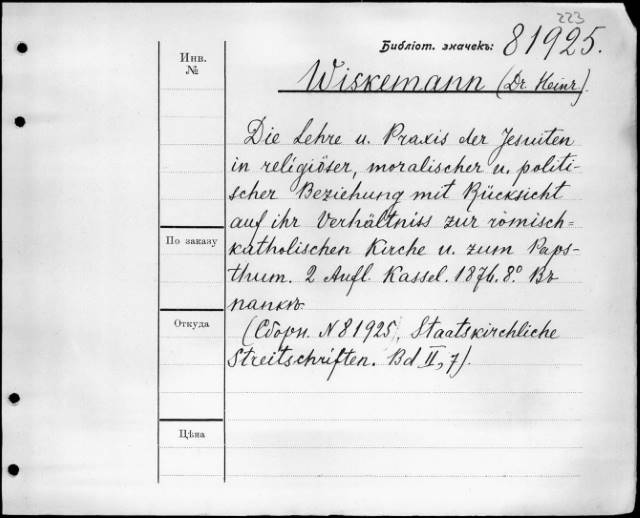 223
Библіот. значекъ: 81925.
Инв.
№
Wiskemann (Dr. Heinr).
Die Lehre u. Praxis der Jesuiten
in religiöser, moralischer u. politi-
scher Beziehung mit Rücksicht
auf ihr Verhältniss zur römisch=
katholischen Kirche u. zum Paps-
thum. 2 Aufl. Kassel. 1876. 8º Въ
папкѣ.
(Сборн. N 81925, Staatskirchliche
Streitschriften. Bd II, 7).
По заказу
Откуда
Цѣна